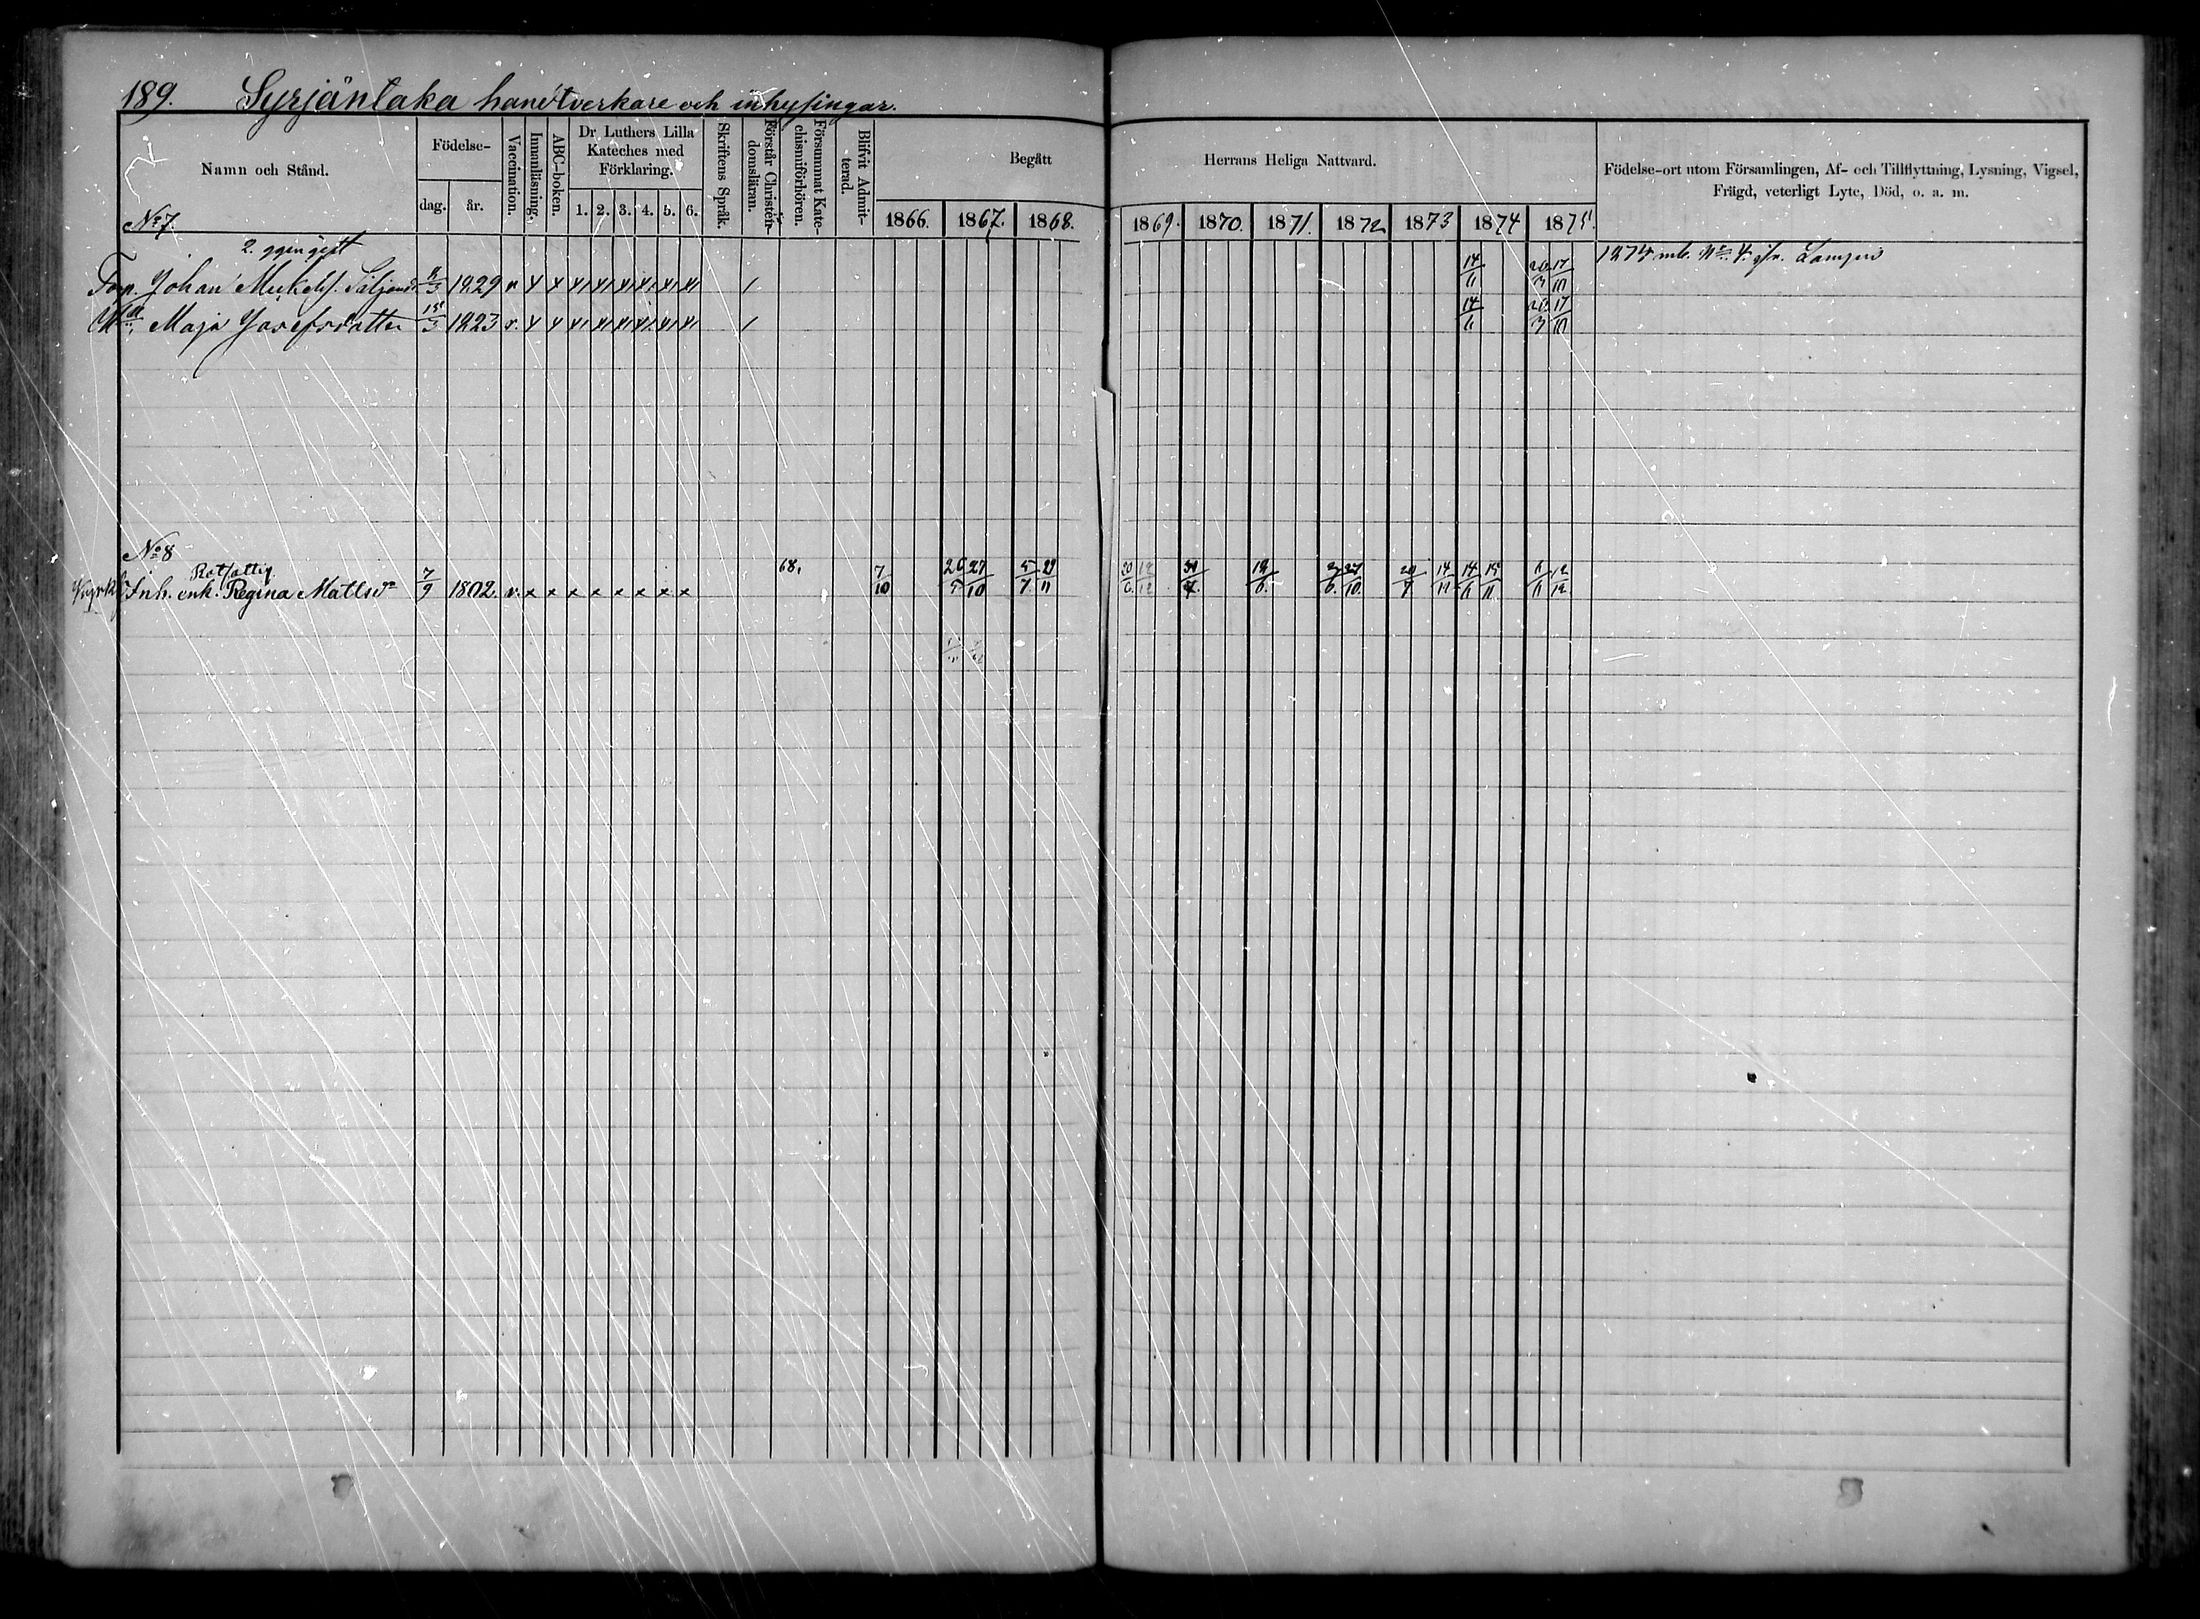 189. Syrjäntaka handtverkare och inhysingar.
Namn och Stånd.
Födelse-
dag. år.
Vaccination.
Innanläsning.
ABC-boken.
Dr Luthers Lilla Kateches med Förklaring.
1. 2. 3. 4. 5. 6.
Skriftens Språk.
Förstår Christendomsläran.
Försummat Katechismiförhören.
Blifvit Admitterad.
Begått Herrans Heliga Nattvard.
1866. 1867. 1868. 1869. 1870. 1871. 1872 1873 1874 1875
Födelse-ort utom Församlingen, Af- och Tillflyttning, Lysning, Vigsel, Frägd, veterligt Lyte, Död, o. a. m.
No 7.
2. ggen gift
Johan 3 1829 v 14/6 17/10 1874 No 4.
Maja Josefsdotter 15/3 1823 v. 14/6 17/10
No 8
Rotfattig
Inh. enk. Regina Mattsdr 7/9 1802. v. x x x x x x x x 68. 7/10 26/5 27/10 5/7 29/11 20/6 12/12 12/6. 2/6. 27/10. 20/7 14/11 14/6 15/11 6/6 12/12